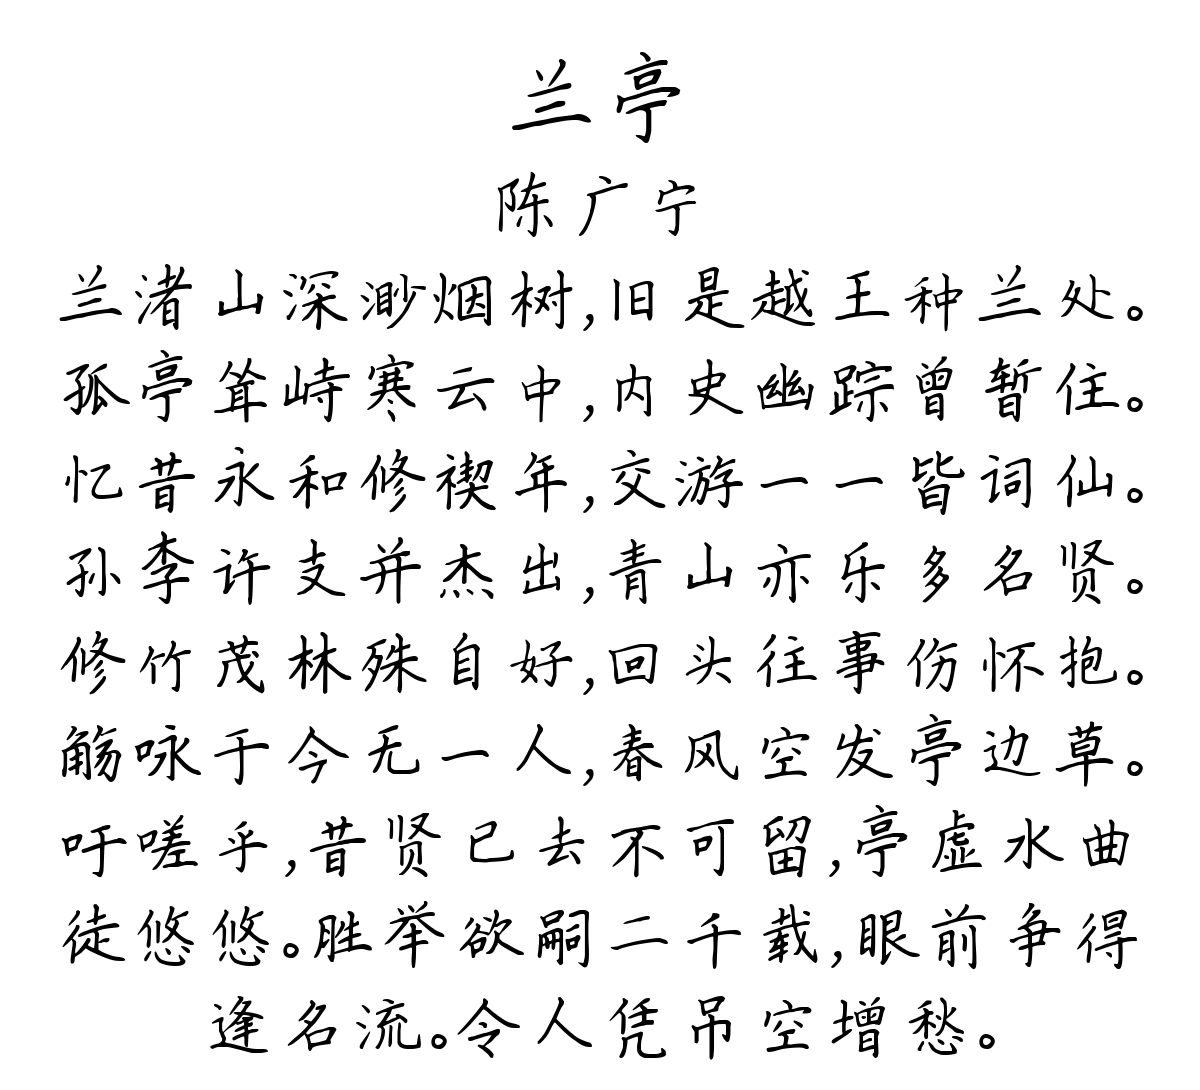 兰亭
陈广宁
兰渚山深渺烟树,旧是越王种兰处。
孤亭耸峙寒云中,内史幽踪曾暂住。
忆昔永和修禊年,交游一一皆词仙。
孙李许支并杰出,青山亦乐多名贤。
修竹茂林殊自好,回头往事伤怀抱。
觞咏于今无一人,春风空发亭边草。
吁嗟乎,昔贤已去不可留,亭虚水曲
徒悠悠。胜举欲嗣二千载,眼前争得
逢名流。令人凭吊空增愁。